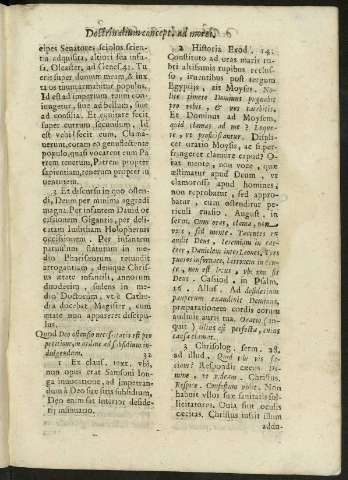 Doctrinalium concept. ad mores.
cipes Senatores scioius scien-
tia adquisita, aliori seu infu-
sa. Oleaster, ad Genes. 41. Tu
eris super domum meam, & iux-
ta os tuum armabitur populus.
Id est ad imperium tuum con-
iungetur, sine ad bellum, siue
ad consilia. Et equitate fecit
super currum secundum, Id
est vehi fecit eum, Clama-
uerunt, coram eo genuflectente
populo, quasi vocarent eum Pa-
trem tenerum, Patrem propter
sapientiam, tenerum propter iu-
uentutem.
3 Et discursis in quo osten-
di, Deum per minima aggredi
magna. Per infantem Dauid oc-
cisionem Gigantis, per deli-
catam Iudith am Holophernis
occisionem. Per infantem
paruulum statutum in me-
dio Pharisæorum retundit
arrogantiam, denique Chris-
tus ætate infantili, annorum
duodecim, sedens in me-
dio Doctorum, vt è Cathe-
dra docebat Magister, cum
ætate non appareret discipu-
lus.
Quod Deo ostenso necessitatis est pro
petitione, in ordine ad subsidium in-
dulgendum. 32
1 Ex claus. text. vbi,
non opus erat Samsoni lon-
ga inuocatione, ad impetran-
dum à Deo suæ sitis subsidium,
Deo enim sat interior deside-
rij insinuatio.
2 Historia Exod. 14.
Constituto ad oras maris ru-
bri altissimis rupibus reclu-
so, irruentibus post tergum
Egyptijs, ait Moyses. No-
lite timere Dominus pugnabit
pro vobis, & vos tacebitis.
Et Dominus ad Moysem,
quid clamas ad me? Loque-
re, vt proficiscantur. Displi-
cet oratio Moysis, ac si per-
stringeret clamore cœpud? O-
rat mente, non voce, quæ
æstimatur apud Deum, vt
clamorosa apud homines,
non reprobatur, sed appro-
batur, cum ostenditur pe-
riculi euasio. August. in
serm. Cum oras, clama, non
voce, sed mente. Tacentes ex
audit Deus, Ieremiam in car-
cere, Danielem inter Leones, Tres
pueros in fornace, Latronem in cru-
ce, non est locus, vbi non sit
Deus. Casiod, in Psalm.
16. Allus. Ad desiderium
pauperum exaudiuit Dominus,
præparationem cordis eorum
audiuit auris tua. Oratio (in-
quit) istius est perfecta, cuius
causa clamat.
3 Chrisolog. serm. 28.
ad illud, Quid tibi vis fa-
ciam? Respondit cæcus Do-
mine, vt videam. Christus,
Respice. Confestim vidit. Non
habuit vllos suæ sanitatis sol-
licitatores. Quia sint oculis
cæcitas. Christus instit illum
addu-